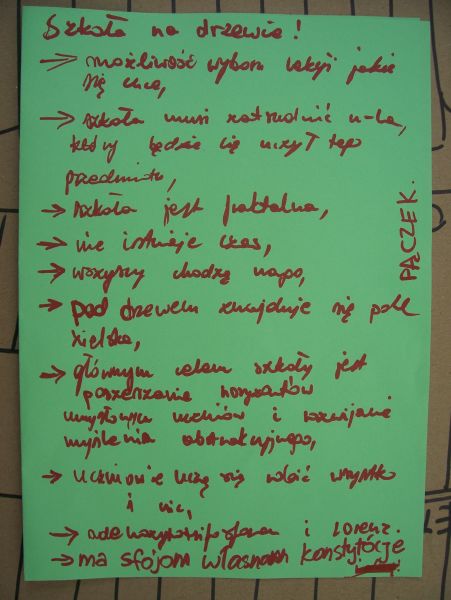 Szkoła na drzewie!
→ możliwość wyboru lekcji jakie
się chce,
→ szkoła musi zatrudnić n-la,
który będzie cię uczył tego
przedmiotu,
→ szkoła jest fraktalna,
→ nie istnieje czas,
→ wszyscy chodzą nago,
→ pod drzewem znajduje się pole
zielska,
→ głównym celem szkoły jest
poszerzanie horyzontów
umysłowych uczniów i rozwijanie
myślenia abstrakcyjnego,
→ uczniowie uczą się robić wszystko
i nic,
→ i Lorenz.
→ ma sfojom własnom konstytócje
PĄCZEK.